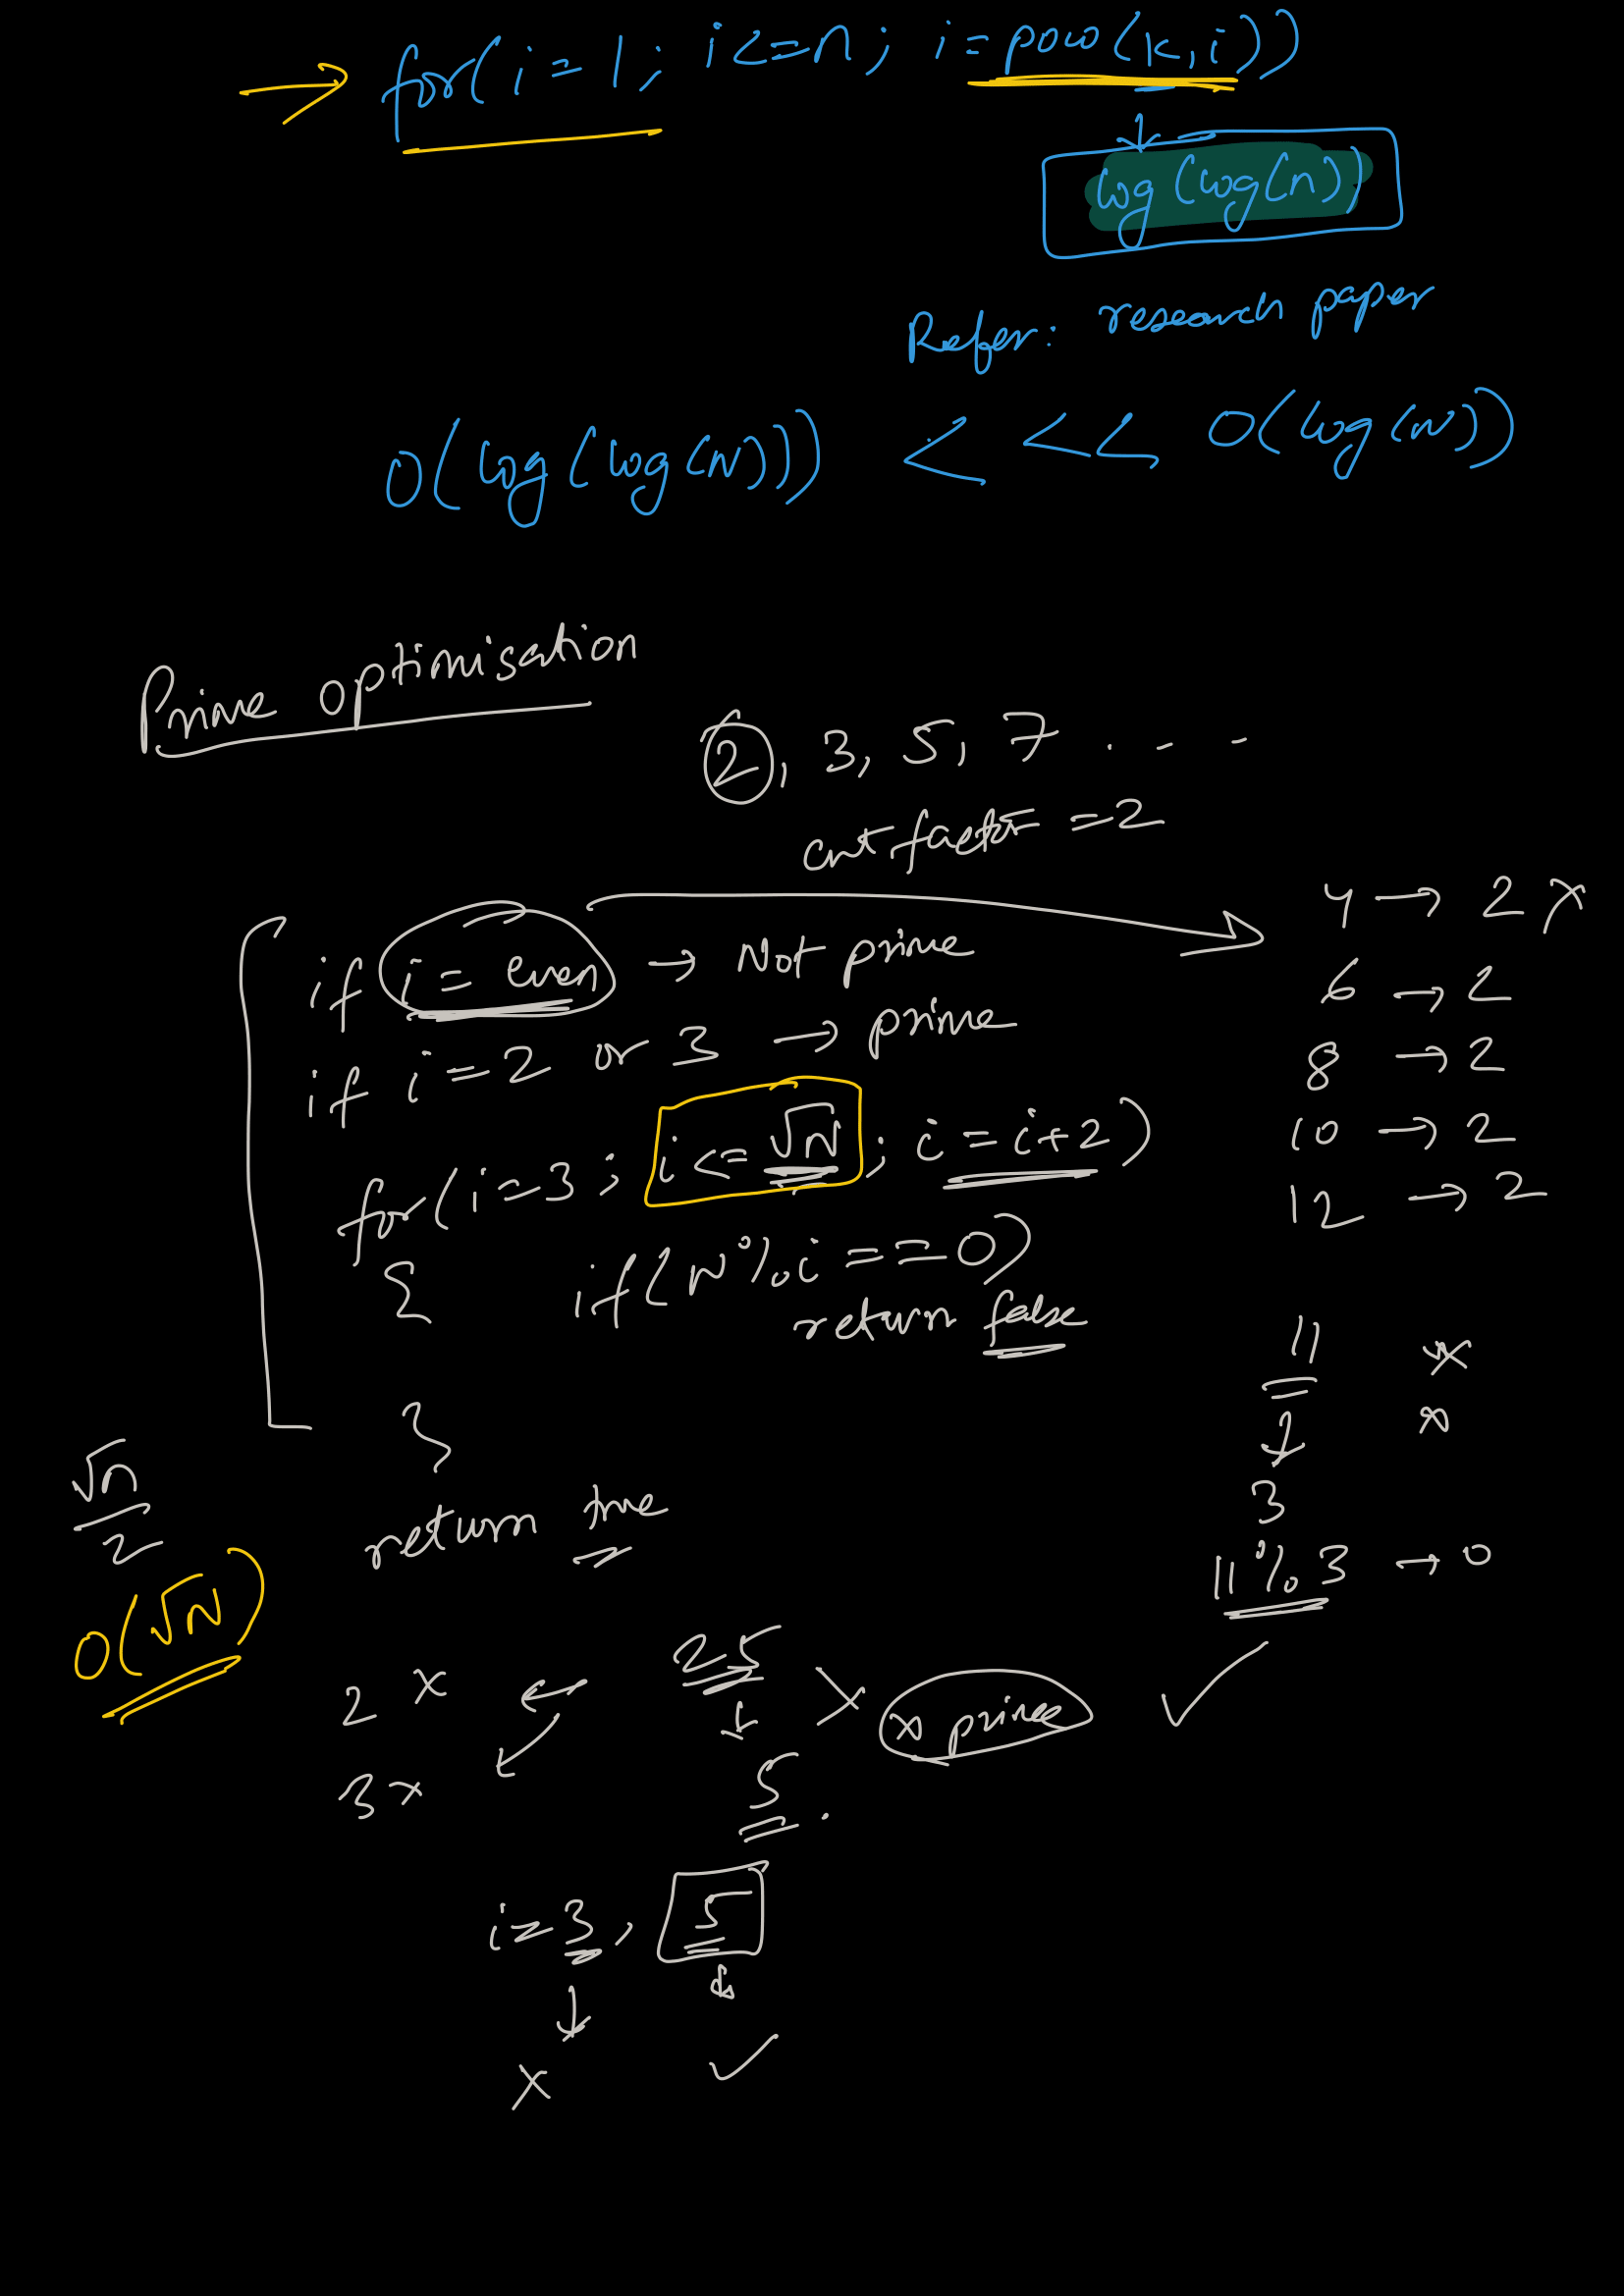 → for(i=1; i<=n; i=pow(k,i))
↓
log(log(n))
Refer: research paper
O(log(log(N))) < << O(log(N))
Prime optimisation
2, 3, 5, 7 . - -
cntfactor = 2
if i = even → Not prime
if i = 2 or 3 → prime
for(i=3; i<=√N; i=i+2)
{ if(N%i==0)
return false
}
return true
√n/2
O(√N)
4 → 2 x
6 → 2
8 → 2
10 → 2
12 → 2
11 x
↓ x
3
11%3 → 0
✓
2 x ← 25 x x prime
↓
3 x 5 .
i=3, 5
↓ ↓
x ✓